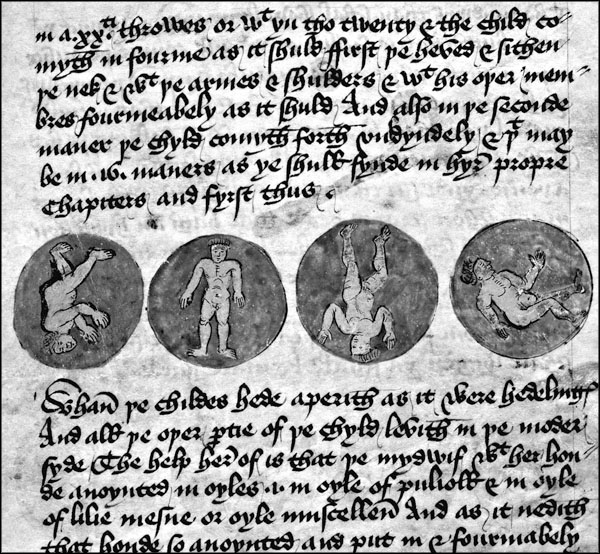 in a .xxti. throwes or wt yn tho twenty & the child co=
myth in fourme as it shuld ffirst þe heved & sithen
þe nek & wt þe armes & shulders & wt his oþer mem=
bres fourmeabely as it shuld And also in þe seconde
maner þe chyld comyth forth vnkyndely & þt may
be in .xv. maners as ye shull fynde in hyr propre
Chapiters and fyrst thus .
Whan þe childes hede aperith as it were hedeling
And all þe oþer ptie of þe chyld levith in þe moder
syde The help her of is that þe mydwif wt her hon=
de anoynted in oyles .i. in oyle of puliole & in oyle
of lilie or oyle muscellen And as it nedith
that honde so anoynted and put in & fourmabely